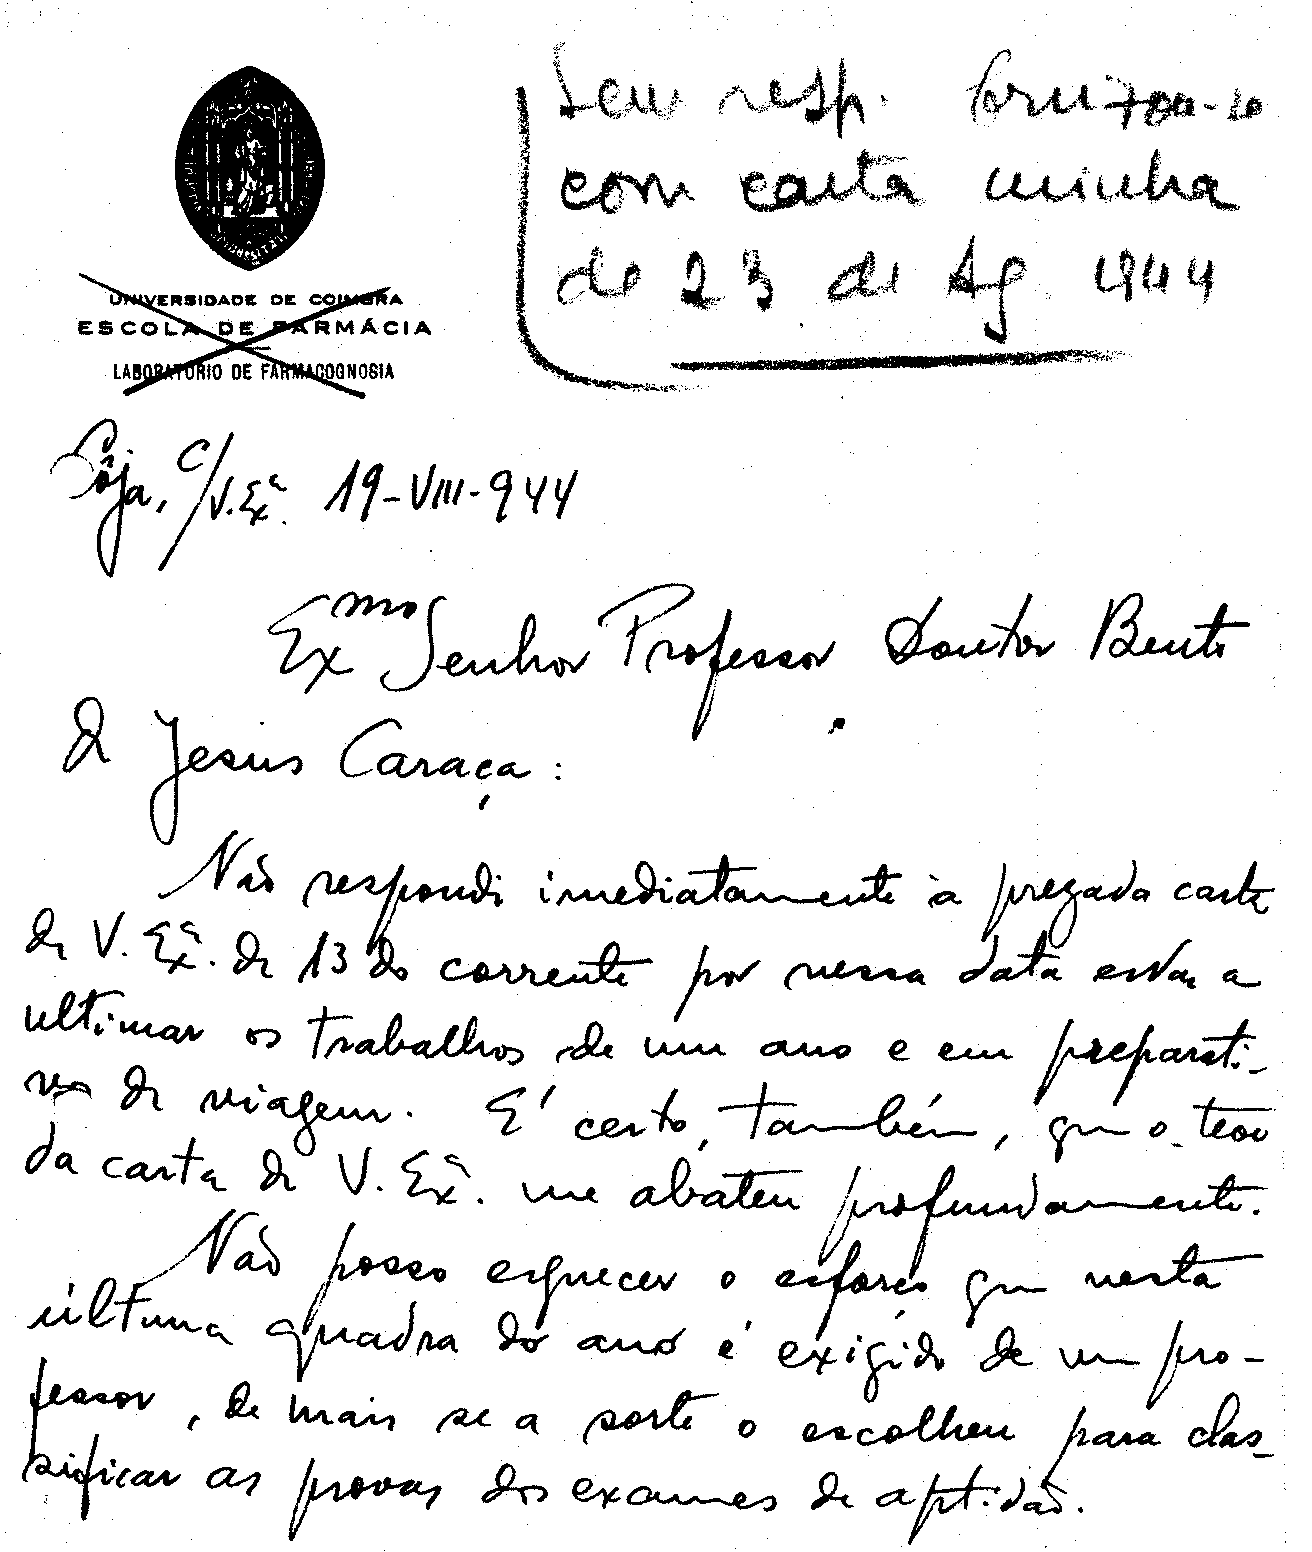 Sem resp. Cruzou-se
com carta minha
de 23 de Ag 1944
UNIVERSIDADE DE COIMBRA
ESCOLA DE FARMÁCIA
LABORATÓRIO DE FARMACOGNOSIA
Côja, c/V. Exª. 19-VIII-944
Exmo Senhor Professor Doutor Bento
de Jesus Caraça:
Não respondi imediatamente à prezada carta
de V. Exª. de 13 do corrente por nessa data estar a
ultimar os trabalhos de um ano e em preparati-
vos de viagem. É certo, também, que o teor
da carta de V. Exª. me abateu profundamente.
Não posso esquecer o esforço que nesta
última quadra do ano é exigido de um pro-
fessor, de mais se a sorte o escolheu para clas-
sificar as provas dos exames de aptidão.